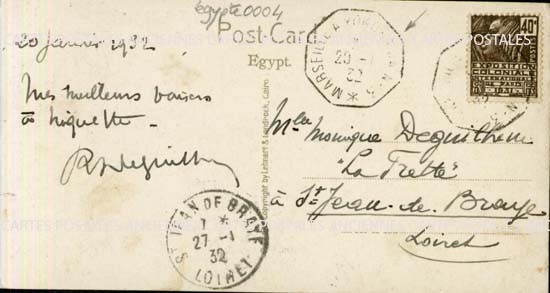 egypte0004
Post-Card
Egypt.
20 Janvier 1932
Mes meilleurs baisers
à Miquette -
Copyright by Lehnert & Landrock, Cairo
MARSEILLE A YOKOHAMA
29 -1
32
40c
EXPOSITION
COLONIALE
INTERNATIONALE
PARIS 1931
Mlle Monique
"La Frette"
à St Jean-de-Braye
Loiret
ST JEAN DE BRAYE
27 -1
32
LOIRET
CARTES POSTALES ANCIENNES